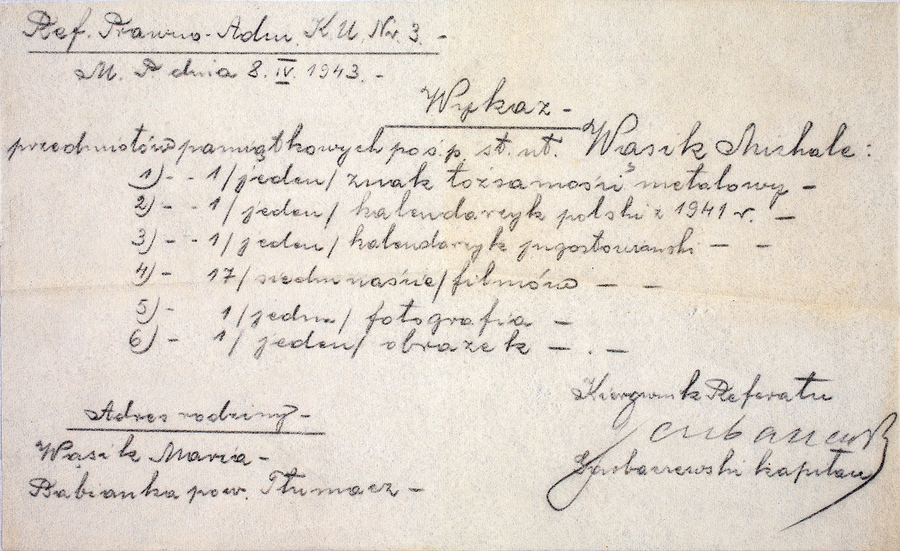 Ref. Prawno-Adm. K.U. Nr. 3. -
M. P. dnia 8. IV. 1943. -
Wykaz -
przedmiotów pamiątkowych po ś.p. st. uł. Wąsik Michale:
1) - - 1/jeden/ znak tożsamości metalowy -
2) - - 1/jeden/ kalendarzyk polski z 1941 r. -
3) - - 1/jeden/ kalendarzyk jugosłowiański - -
4) - 17/siedemnaście/ filmów - -
5) - 1/jedna/ fotografia -
6) - 1/jeden/ obrazek - . -
Kierownik Referatu
kapitan
Adres rodziny -
Wąsik Maria -
Babianka pow. Tłumacz -